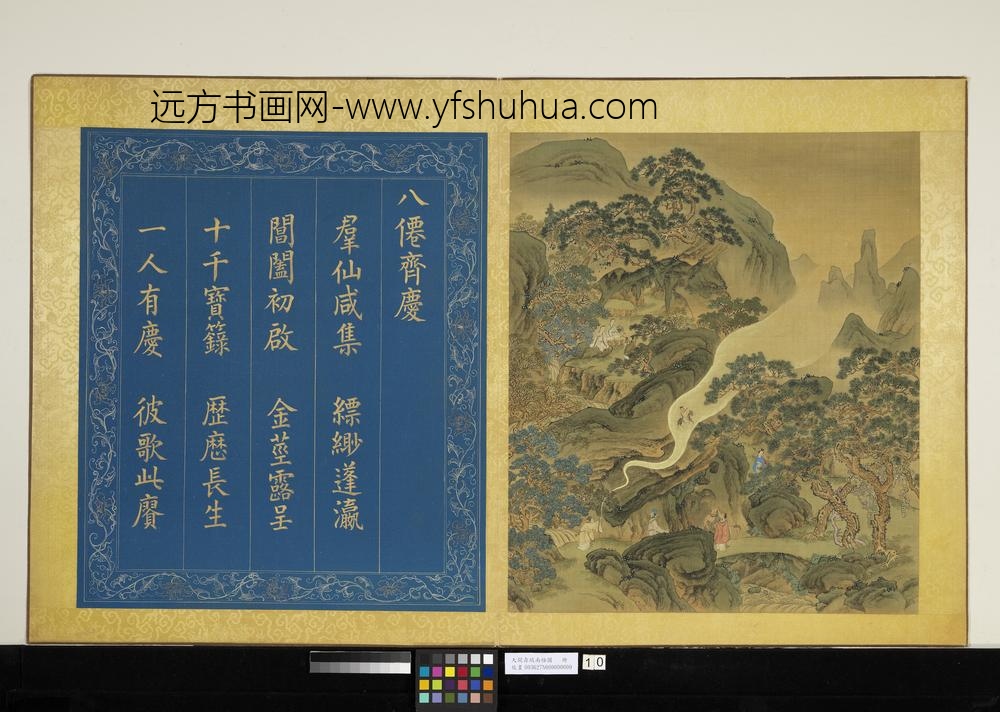 远方书画网-www.yfshuhua.com
八僊齊慶
羣仙咸集 縹緲蓬瀛
閶闔初啟 金莖露呈
十千寶籙 歷歷長生
一人有慶 彼歌此賡
10